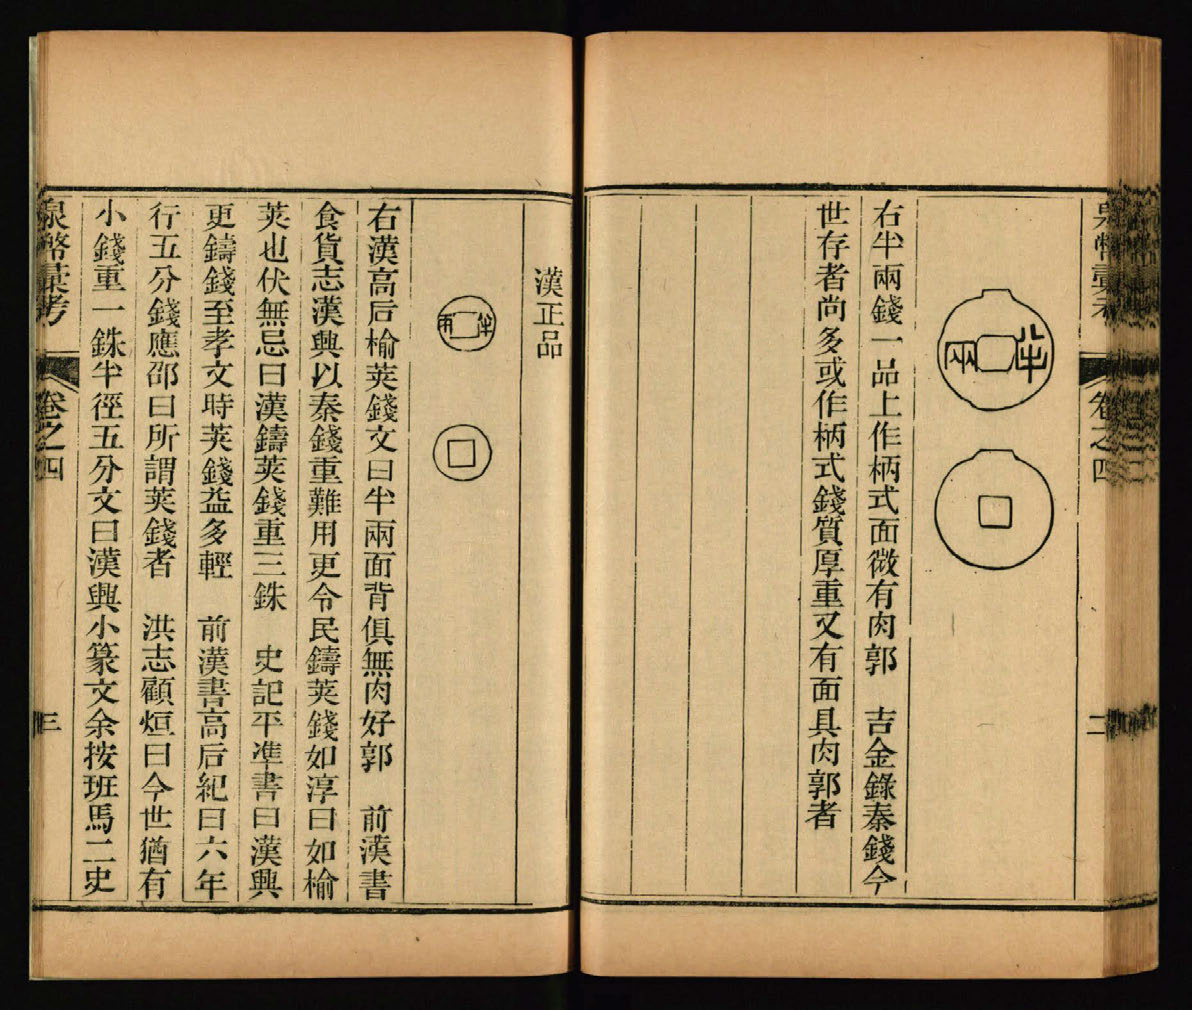 泉幣彙考
卷之四
二
半兩
右半兩錢一品上作柄式面微有肉郭 吉金錄秦錢今
世存者尚多或作柄式錢質厚重又有面具肉郭者
漢正品
半兩
右漢高后榆莢錢文曰半兩面背俱無肉好郭 前漢書
食貨志漢興以秦錢重難用更令民鑄莢錢如淳曰如榆
莢也伏無忌曰漢鑄莢錢重三銖 史記平準書曰漢興
更鑄錢至孝文時莢錢益多輕 前漢書高后紀曰六年
行五分錢應邵曰所謂莢錢者 洪志顧烜曰今世猶有
小錢重一銖半徑五分文曰漢興小篆文余按班馬二史
泉幣彙考
卷之四
三